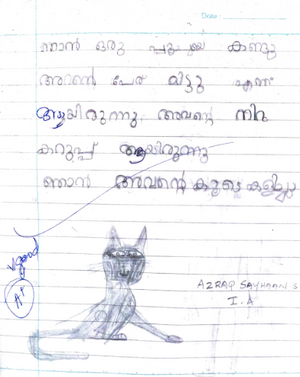 Date
ഞാൻ ഒരു പൂച്ചയെ കണ്ടു
അവന്റെ പേര് കിട്ടു എന്ന്
ആയിരുന്നു. അവന്റെ നിറം
കറുപ്പ് ആയിരുന്നു
ഞാൻ അവന്റെ കൂടെ കളിച്ചു
V.good
A+
AZRAQ SAYHAAN S
I.A